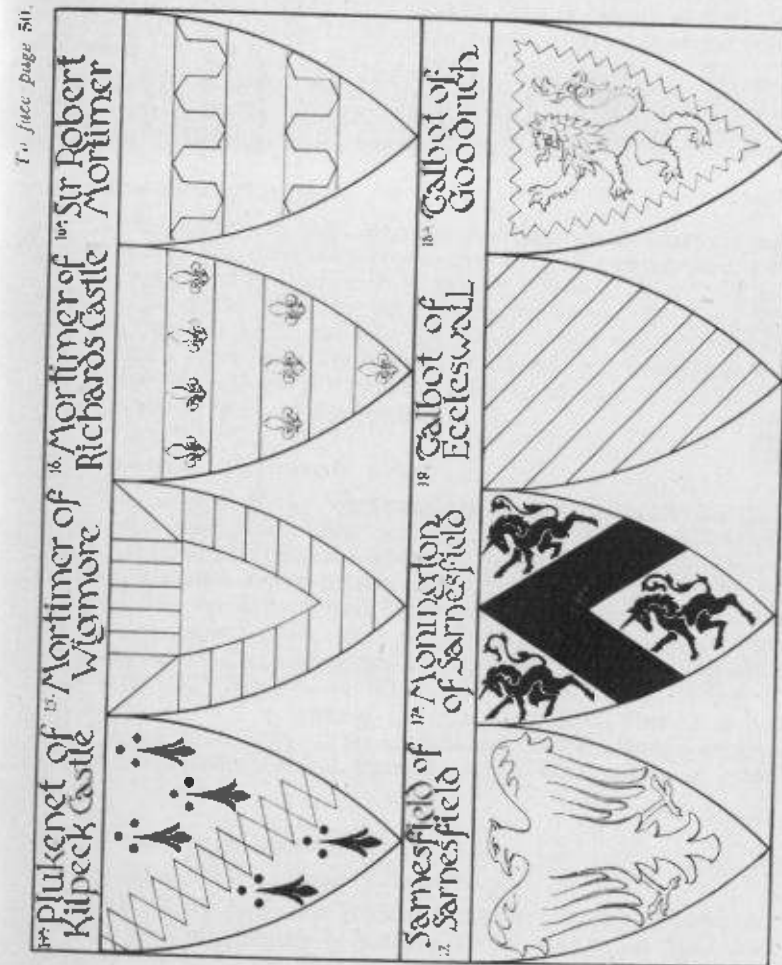 To face page 50.
14A. Plukenet of
Kilpeck Castle
15. Mortimer of
Wigmore
16. Mortimer of
Richards Castle
16A. Sir Robert
Mortimer
17. Sarnesfield of
Sarnesfield
17A. Monington
of Sarnesfield
18. Talbot of
Eccleswall
18A. Talbot of
Goodrich